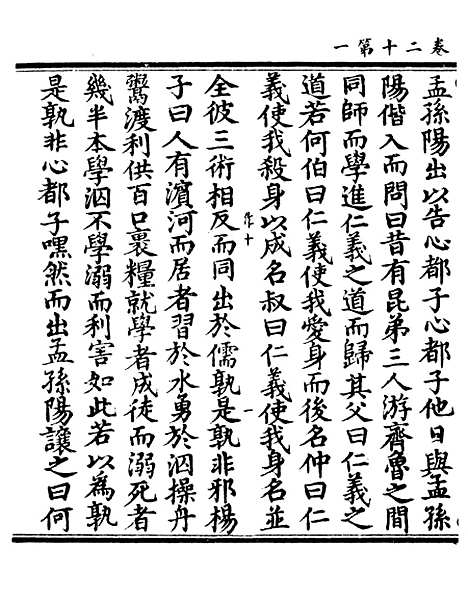 卷二十第一
孟孫陽出以告心都子心都子他日與孟孫
陽偕入而問曰昔有昆弟三人游齊魯之間
同師而學進仁義之道而歸其父曰仁義之
道若何伯曰仁義使我愛身而後名仲曰仁
義使我殺身以成名叔曰仁義使我身名並
全彼三術相反而同出於儒孰是孰非邪楊
子曰人有濵河而居者習於水勇於泅操舟
鬻渡利供百口裹糧就學者成徒而溺死者
幾半本學泅不學溺而利害如此若以為孰
是孰非心都子嘿然而出孟孫陽讓之曰何